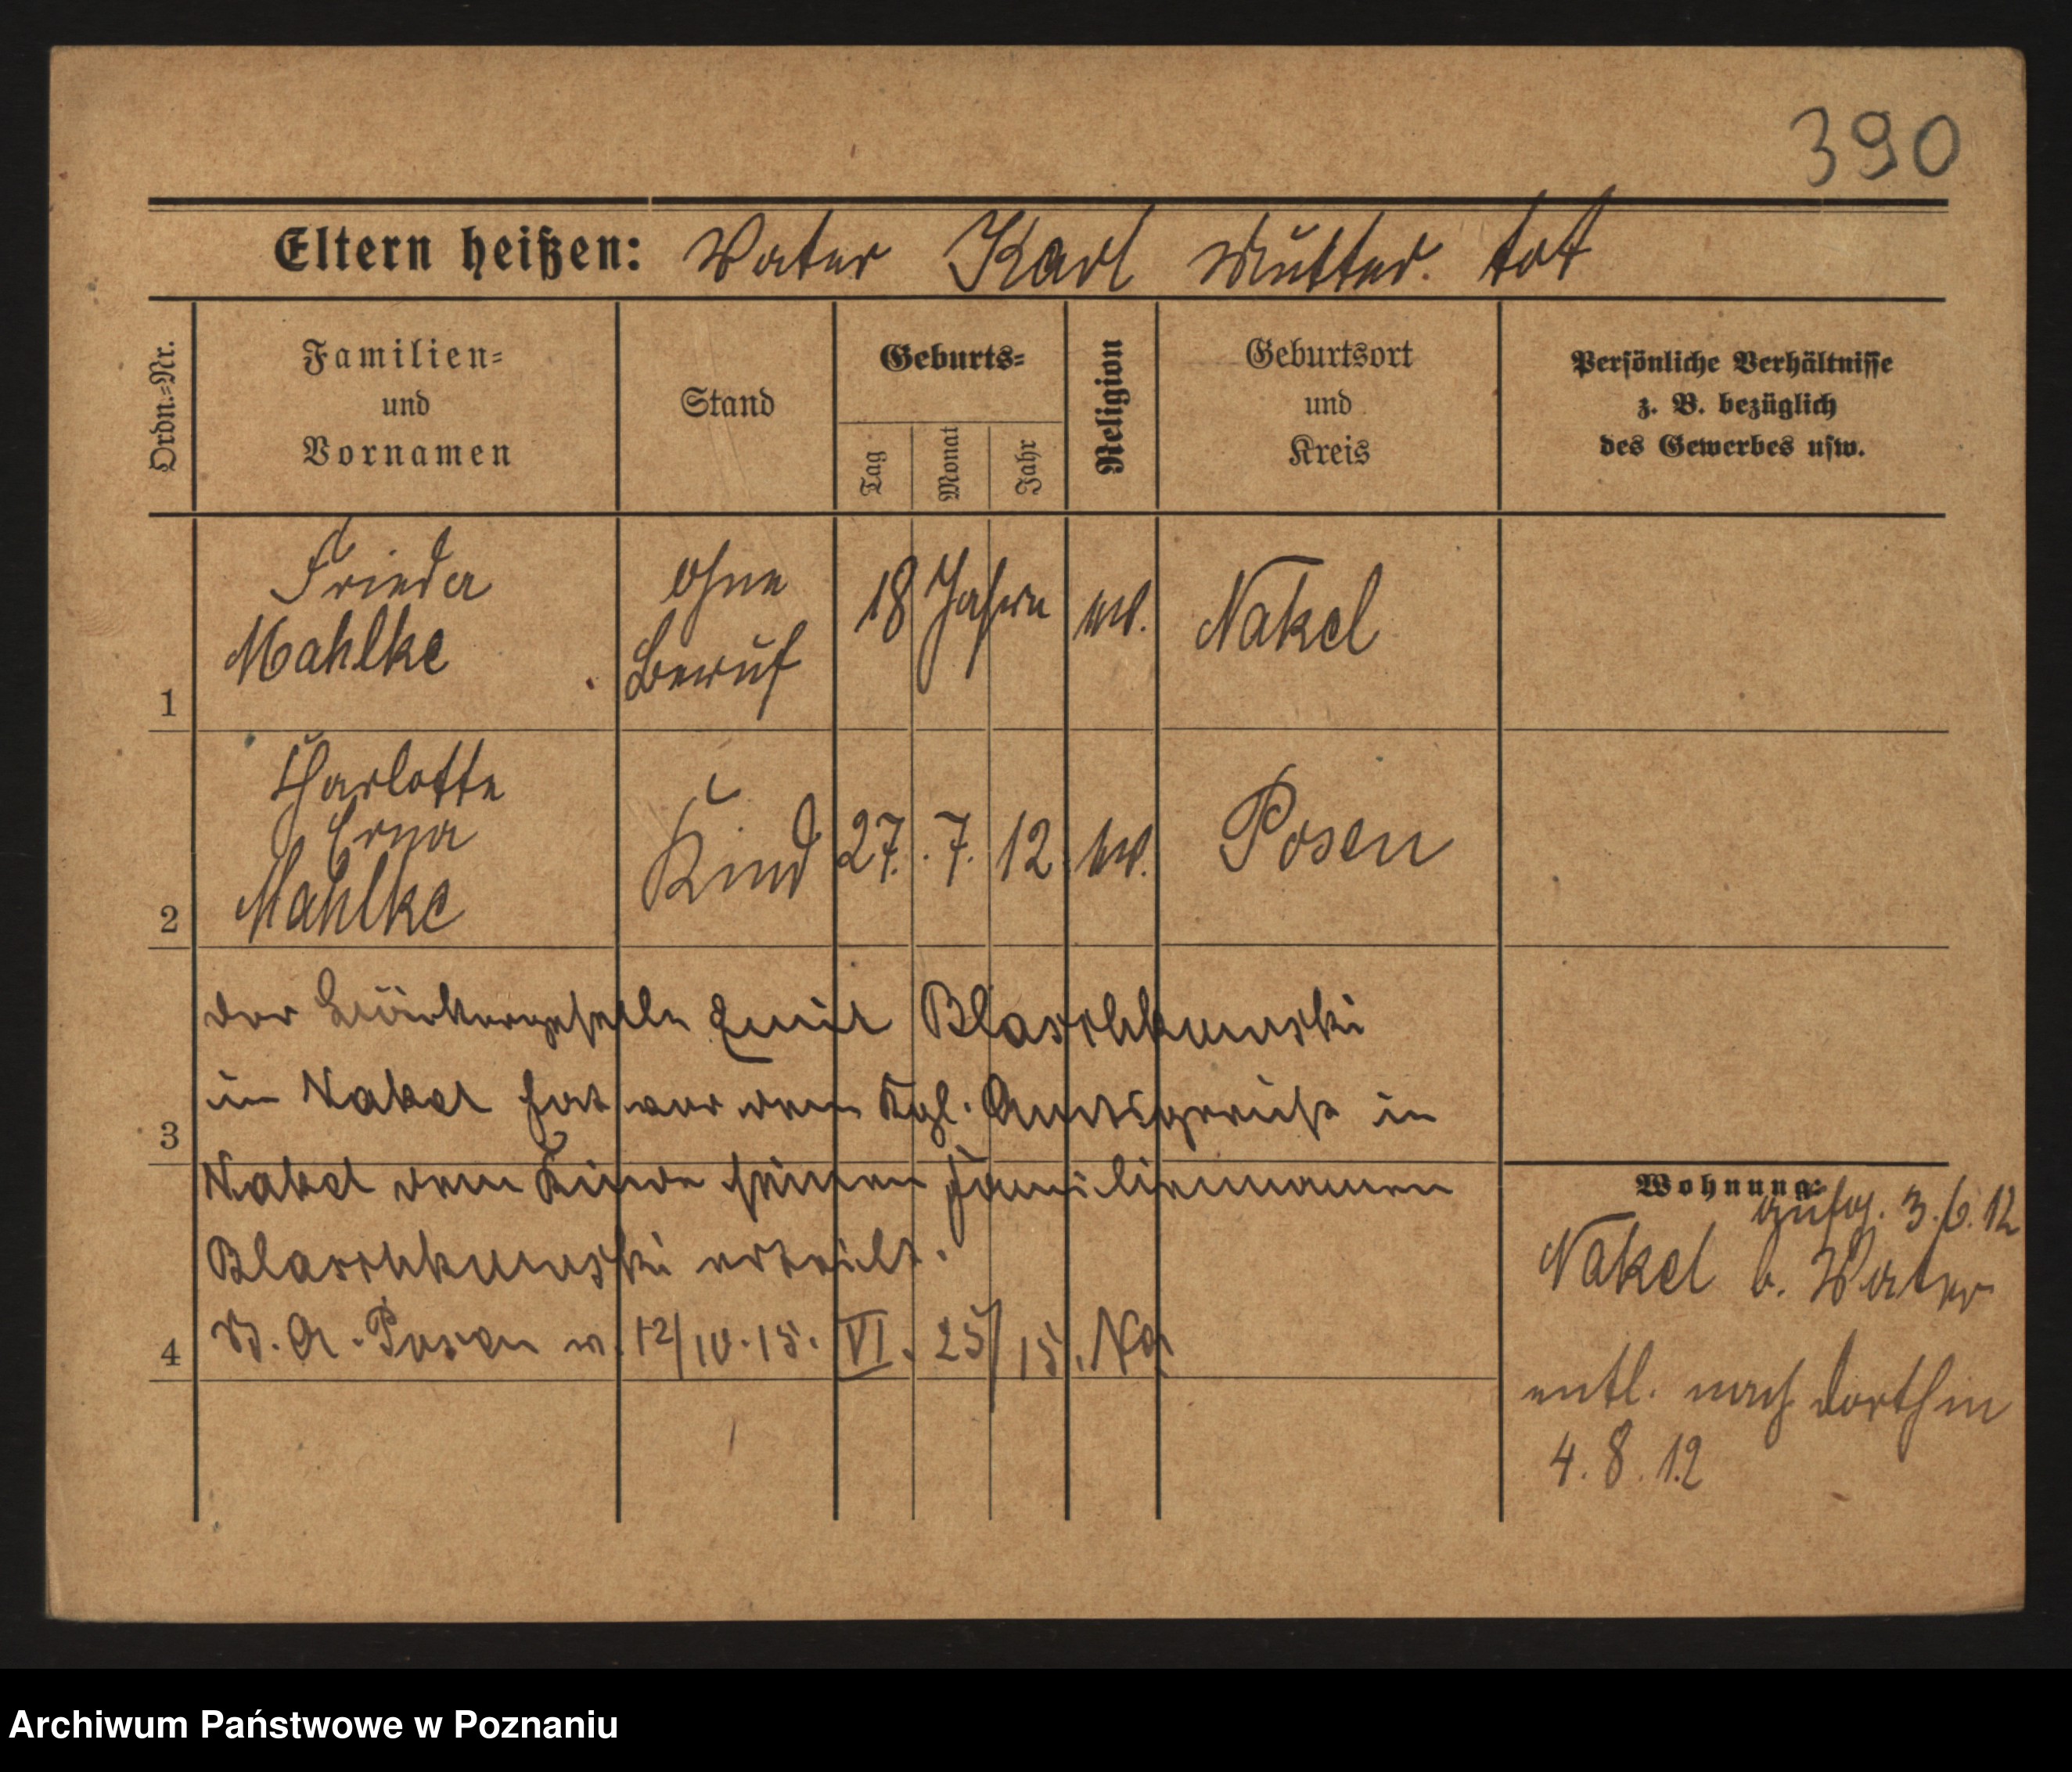 390
Eltern heißen: Vater Karl Mutter. tot
Ordn.=Nr.
Familien=
und
Vornamen
Stand
Geburts=
Tag
Monat
Jahr
Religion
Geburtsort
und
Kreis
Persönliche Verhältnisse
z. B. bezüglich
des Gewerbes usw.
1
Frieda
Mahlke
ohne
Beruf
18 Jahre
ev.
Nakel
2
Charlotte
Erna
Mahlke
Kind
27. 7. 12.
ev.
Posen
3
der Bäckergeselle Emil Blaschkewski
in Nakel hat vor dem Kgl. Amtsgericht in
Nakel dem Kinde seinen Familiennamen
4
Blaschkewski erteilt.
Posen v. 12/10.15. VI. 25/15. Na
Wohnung:
zuletzt 3. 6. 12
Nakel b. Vater
entl. nach dorthin
4. 8. 12
Archiwum Państwowe w Poznaniu